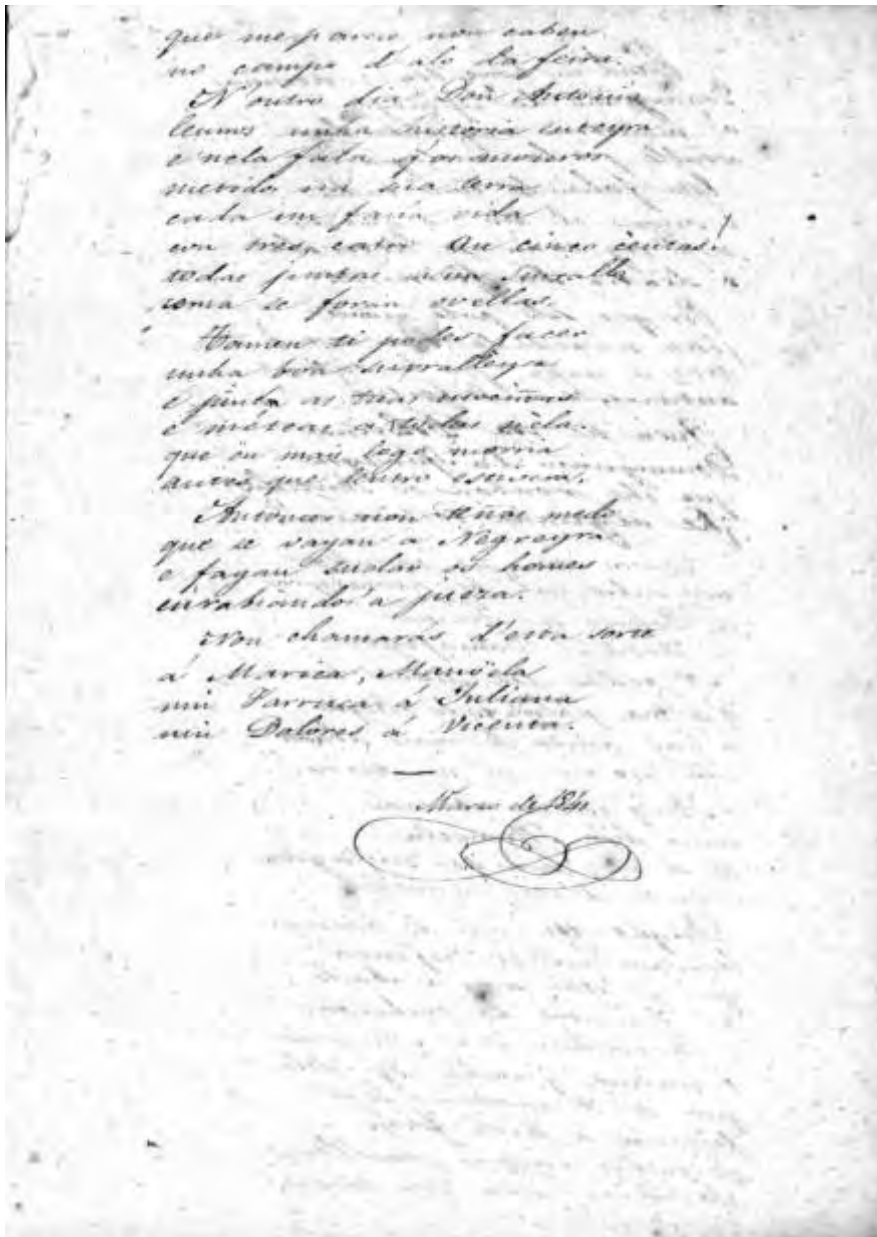 que me parece non caben
no campo d'alo da feira.
N'outro dia Don Antonio
leunos unha historia enteyra
e nela fala q'os mouros
metidos na sua terra
cada un facia vida
con tres, catro ou cinco centas!
todas juntas n'un
coma se foran ovellas.
Tamen ti podes facer
unha boa surralleyra
e junta as tuas
e méteas a todas nela.
que ou mais logo morria
antes que
Antonces non teñas medo
que se vayan a Negreyra
e fagan sudar os homes
enrabiando a
Non chamarás d'esta sorte
á Marica, Manoela
nin Farruca á Juliana
nin Dolores á Vicenta.
Marzo de 1841.